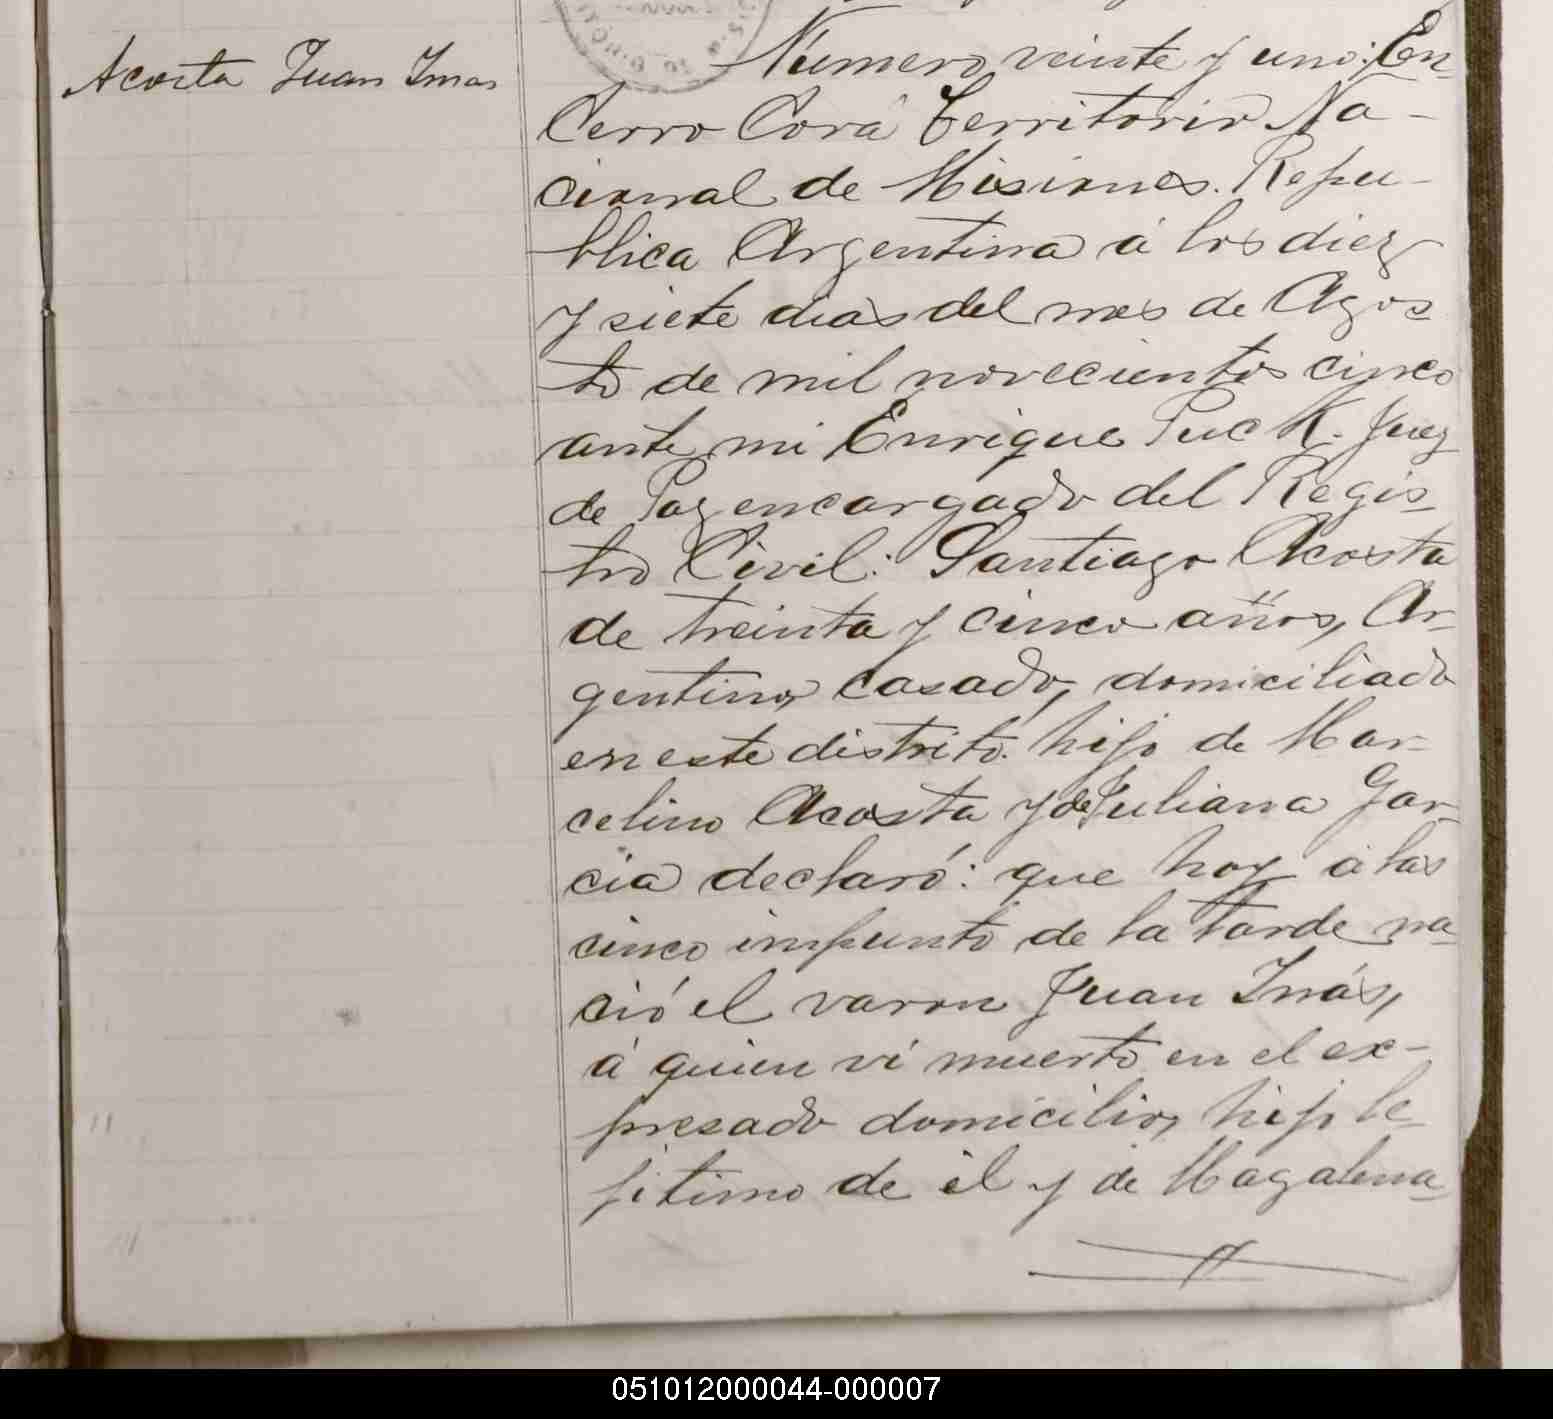 Acosta Juan Inas
Numero veinte y uno: En
Cerro Corá Territorio Na-
cional de Misiones. Repu-
blica Argentina á los diez
y siete dias del mes de Agos-
to de mil novecientos cinco
ante mi Enrique Puck. Juez
de Paz encargado del Regis-
tro Civil: Santiago Acosta
de treinta y cinco años, Ar-
gentino, casado, domiciliado
en este distrito. hijo de Mar-
celino Acosta y de Juliana Gar-
cia declaró: que hoy á las
cinco impunto de la tarde na-
ció el varon Juan Inás,
á quien ví muerto en el ex-
presado domicilio, hijo le-
jitimo de él y de Magalena
051012000044-000007